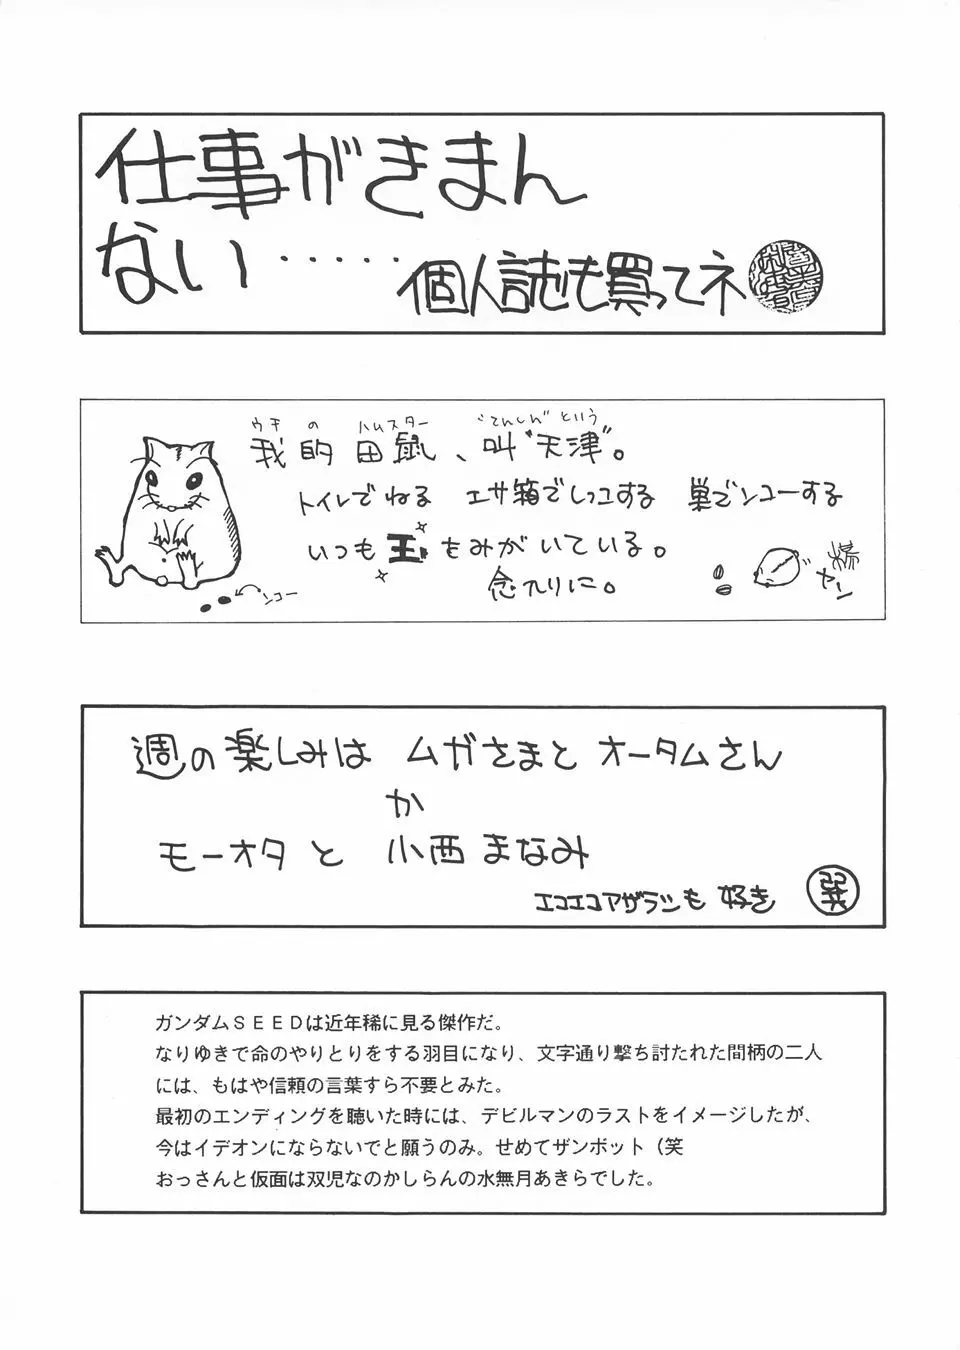 仕事がきまん
ない・・・・・個人誌も買ってネ
ウチ の ハムスター “てんしん”という
我的田鼠、叫“天津”。
トイレでねる エサ箱でしっコする 巣でンコーする
いつも玉をみがいている。
念入りに。
ンコー
ヤーン
週の楽しみは ムガさまと オータムさん
か
モーオタと 小西まなみ
エコエコアザラシも 好き
巽
ガンダムSEEDは近年稀に見る傑作だ。
なりゆきで命のやりとりをする羽目になり、文字通り撃ち討たれた間柄の二人
には、もはや信頼の言葉すら不要とみた。
最初のエンディングを聴いた時には、デビルマンのラストをイメージしたが、
今はイデオンにならないでと願うのみ。せめてザンボット（笑
おっさんと仮面は双児なのかしらんの水無月あきらでした。